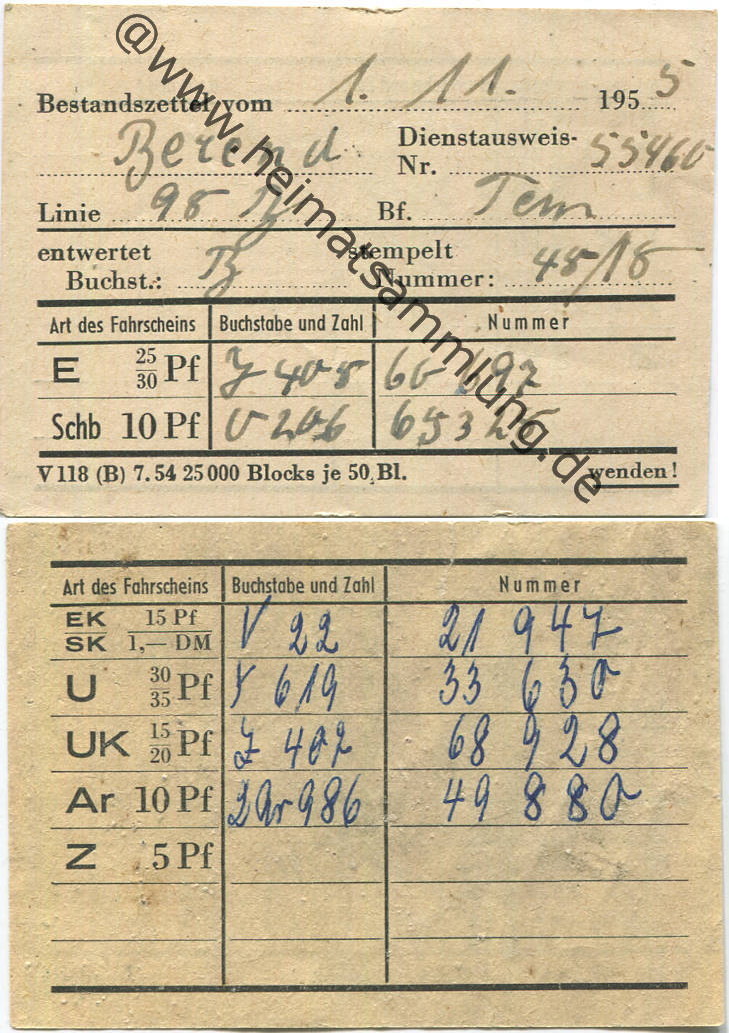 Bestandszettel vom 1. 11. 1955
Berend Dienstausweis-Nr. 55460
Linie 98 Bf. Tem
entwertet Buchst.: B stempelt Nummer: 48/18
Art des Fahrscheins Buchstabe und Zahl Nummer
E 25/30 Pf 405
Schb 10 Pf 206 65326
V 118 (B) 7.54 25 000 Blocks je 50 Bl. wenden!
@www.heimatsammlung.de
Art des Fahrscheins Buchstabe und Zahl Nummer
EK 15 Pf V 22 21 947
SK 1,— DM
U 30/35 Pf Y 619 33 630
UK 15/20 Pf Z 407 68 928
Ar 10 Pf Ar 986 49 880
Z 5 Pf